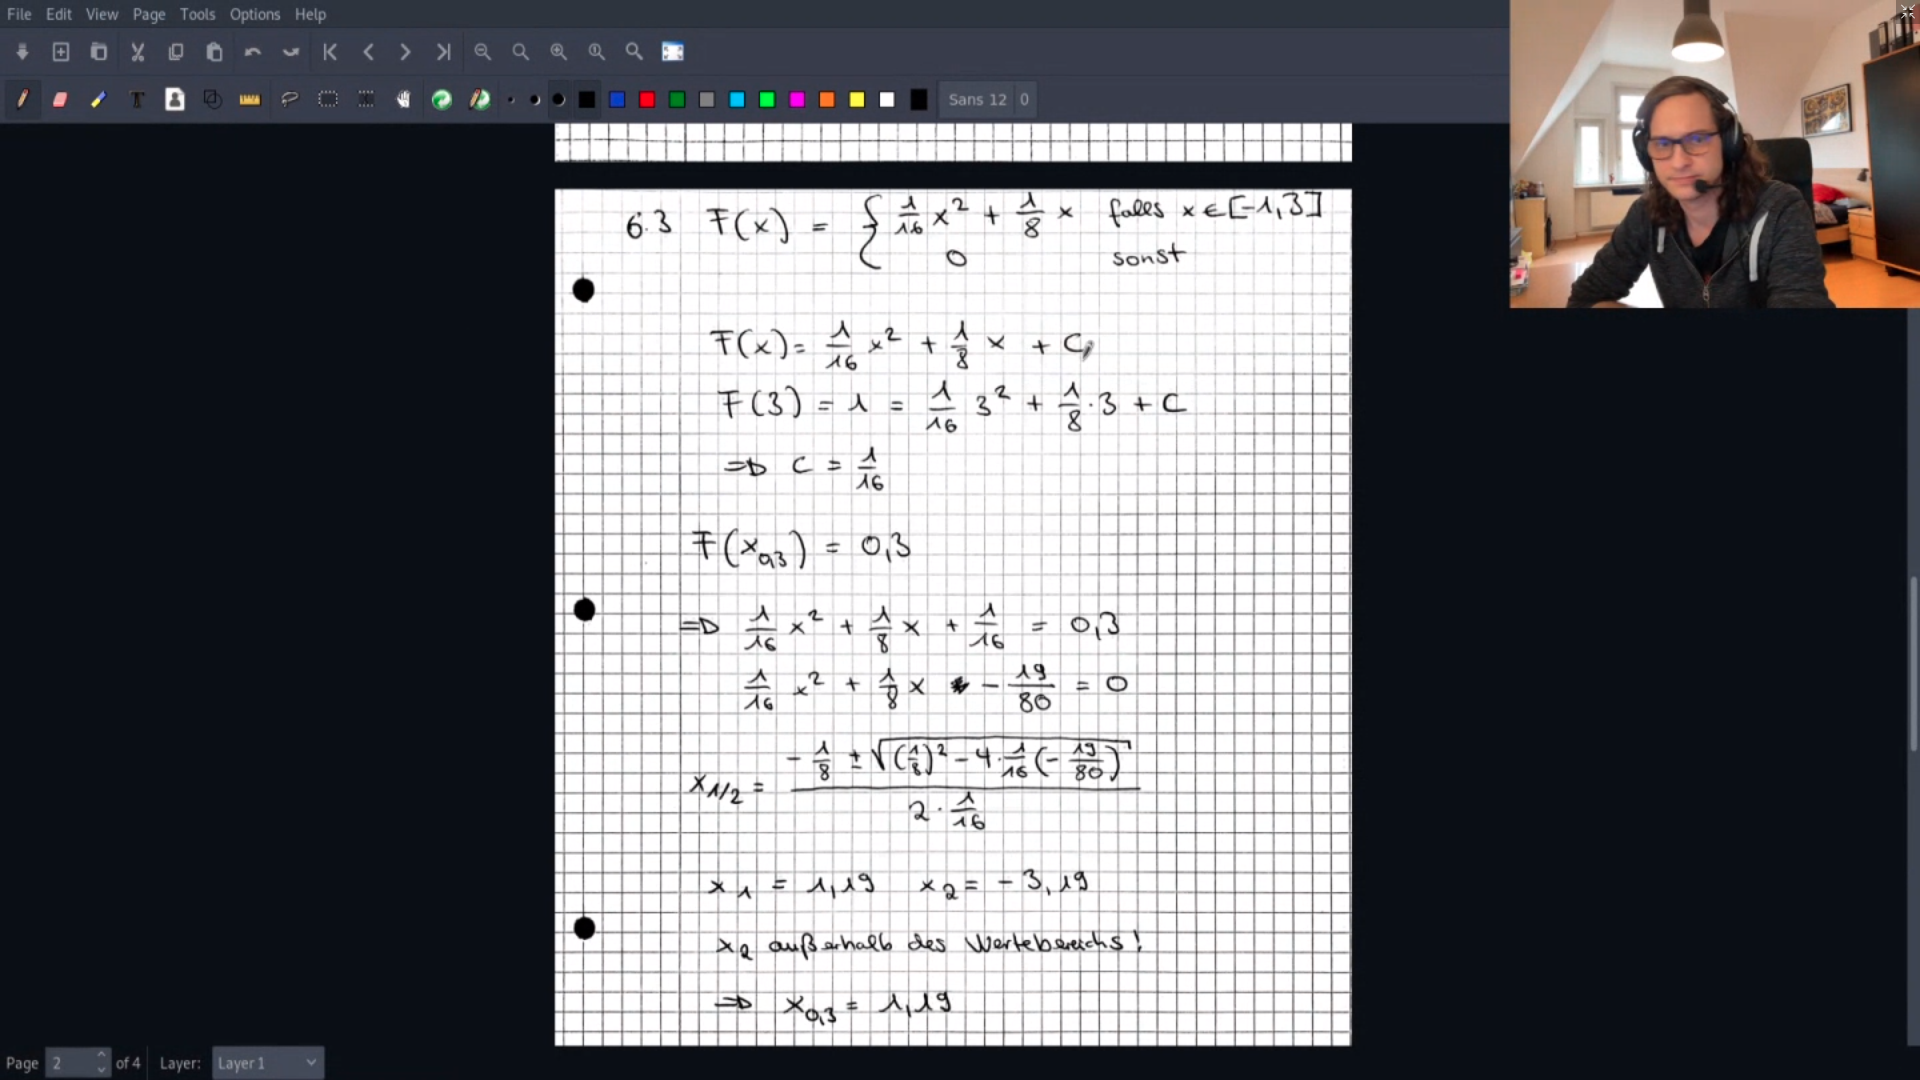 File Edit View Page Tools Options Help
Sans 12 0
6.3 F(x) = { 1/16 x² + 1/8 x falls x ∈ [-1,3]
0 sonst
F(x) = 1/16 x² + 1/8 x + C
F(3) = 1 = 1/16 3² + 1/8 · 3 + C
=> C = 1/16
F(x_0,3) = 0,3
=> 1/16 x² + 1/8 x + 1/16 = 0,3
1/16 x² + 1/8 x - 19/80 = 0
x_1/2 = (-1/8 ± √((1/8)² - 4 · 1/16 (-19/80))) / (2 · 1/16)
x_1 = 1,19 x_2 = -3,19
x_2 außerhalb des Wertebereichs!
=> x_0,3 = 1,19
Page 2 of 4 Layer: Layer 1